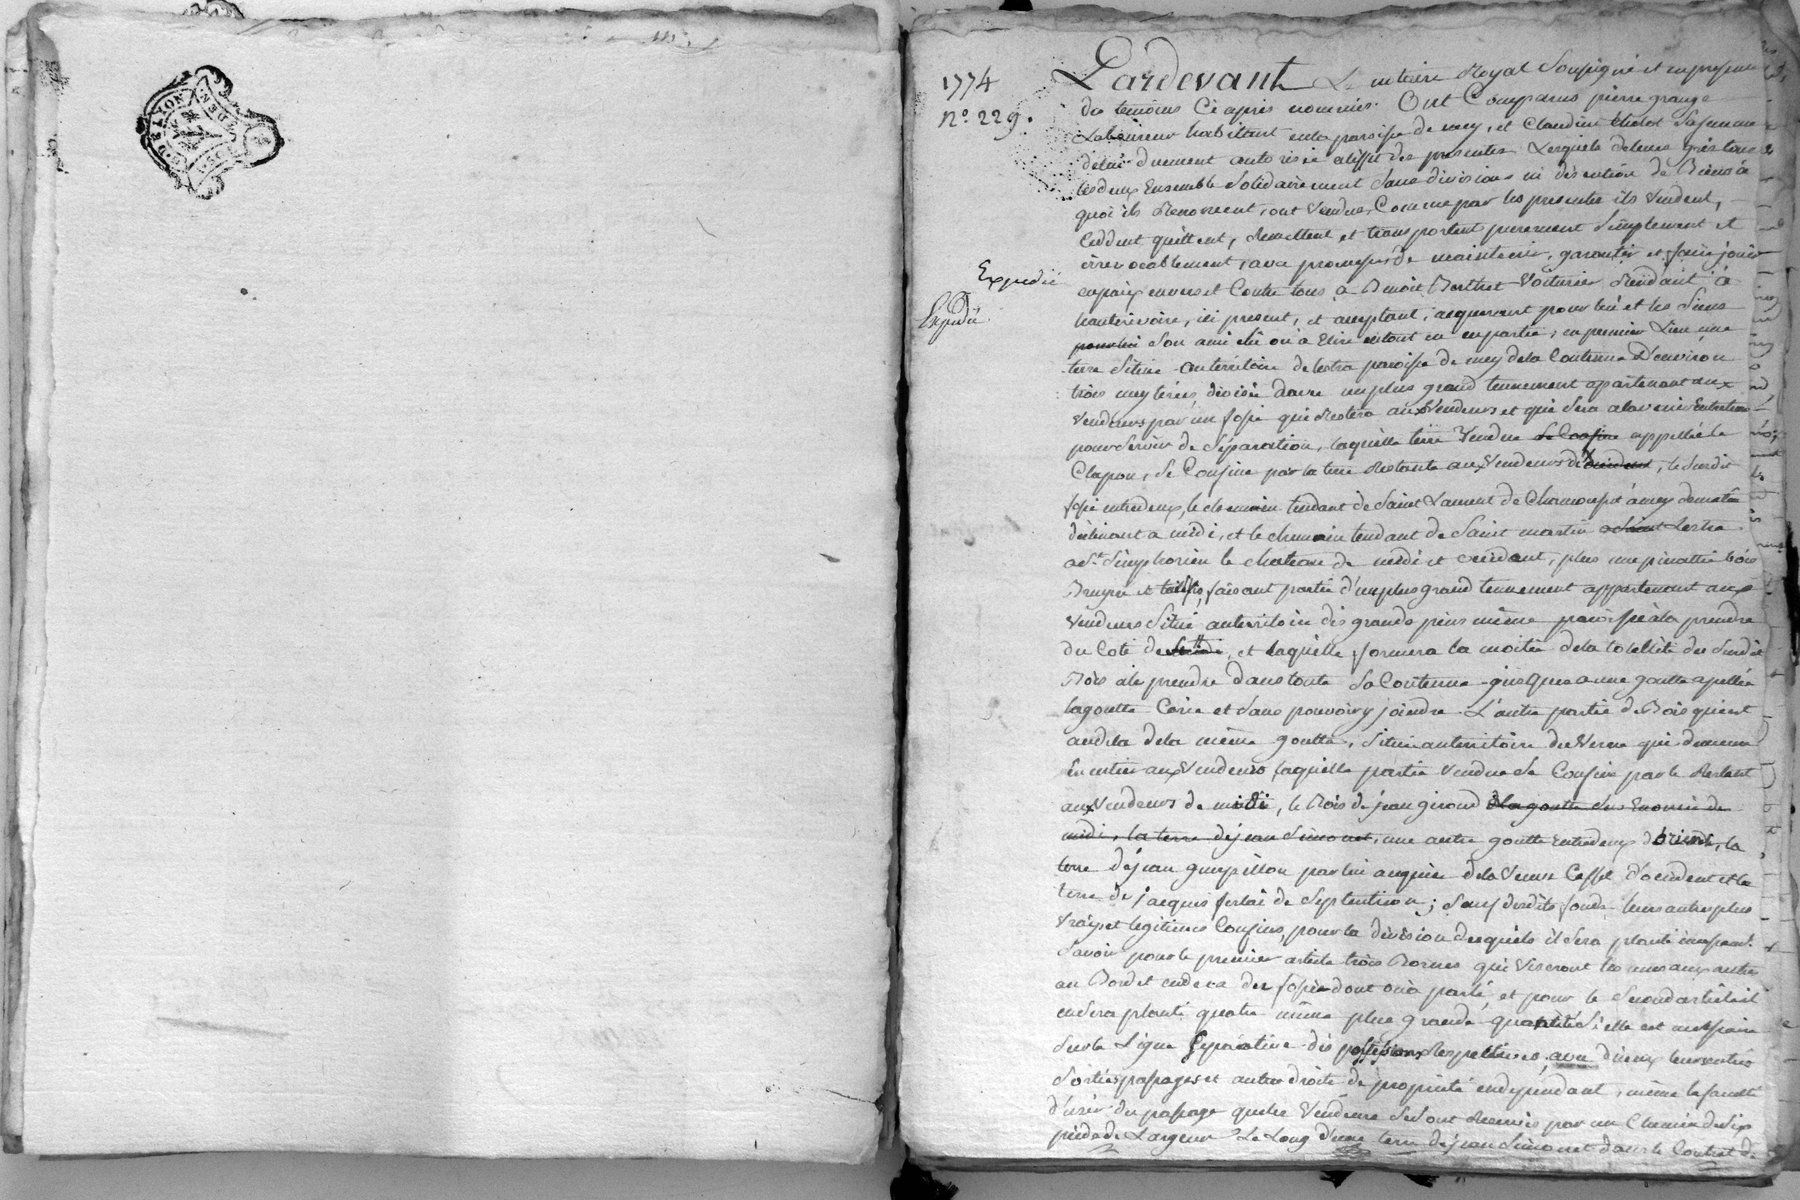 1774
n.° 229.
Expedié
Expedié
Pardevant Le notaire Royal Soussigné et en presence
des temoins Cy après nommés. Ont Comparus pierre grange
Laboureur habittant en la paroisse de mey, et Claudine Sa femme
de lui duement autorisée a l'effet des presentes Lesquels de leurs grés tous
les deux Ensemble Solidairement Sans division ni discution de Biens à
quoi ils Renoncent, ont Vendus, Comme par les presentes ils Vendent,
Ceddent quittent, Remettent et transportent purement Simplement et
irrevocablement, avec promesse de maintenir, garantir et faire jouir
en paix envers et Contre tous, à Benoit Berthet Voiturier Résidant à
hauterivoire, ici present, et acceptant, acquerant pour lui et les Siens
pour lui Son ami élu ou à Elire en tout ou en partie; en premier Lieu une
terre Située au territoire de Lestra paroisse de mey de la Contenue D'environ
trois meyterées, divisée d'avec un plus grand tennement apartenant aux
Vendeurs par un fossé qui Restera aux Vendeurs et qui Sera a l'avenir Entretenu
pour Servir de Séparation, laquelle terre Vendue Se Confine appellée le
Clapon, Se Confine par la terre Restante aux Vendeurs d' le Surdit
fossé entredeux, le chemin tendant de Saint Laurent de Chamousset à mey de matin
déclinant a midi, et le chemin tendant de Saint martin Lestra
a St. Simphorien le chateau de midi et occident, plus une pinattée bois
Bruyere et faisant partie d'un plus grand tennement appartenant aux
Vendeurs Situé au territoire des grands pins même paroisse à la prendre
du Coté de et laquelle formera la moitié de la totallité du Surdit
Bois a le prendre dans toute Sa Contenue jusques a une goutte apellée
la goutte et Sans pouvoir y joindre L'autre partie de Bois qui est
au dela de la même goutte, Située au territoire du Verne qui demeure
En entier aux Vendeurs, laquelle partie Vendue Se Confine par le Restant
aux Vendeurs de midi, le Bois de jean giroud la goutte Sus Enoncée de
midi, la terre de jean Simonet, une autre goutte entredeux d'orient, la
terre de jean par lui acquise de la Veuve d'occident et la
terre de jacques de Septentrion; Sauf desdits fonds leurs autres plus
Vrays et legitimes Confins, pour la division desquels il Sera planté
Savoir pour le premier article trois Bornes qui Viseront les unes aux autres
au Bord et endeca du fossé dont on a parlé, et pour le Second article il
en Sera planté quatre même plus grande quantité Si elle est necessaire
Sur la Ligne Separative des possessions Respectives, avec d'iceux leurs entrées
Sorties passages et autres droits de propriété en dépendant, même la faculté
d'user du passage que les Vendeurs Se Sont Reservés par un Chemin de Six
pieds de Largeur Le Long d'une terre de jean Simonet dans le Contrat de